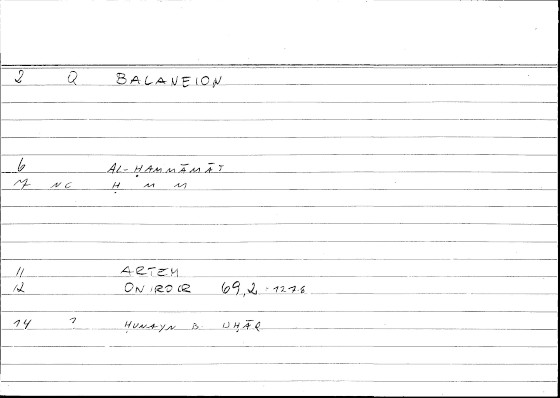 2 Q BALANEION
6 AL-ḤAMMĀMĀT
7 NC Ḥ M M
11 ARTEM
12 ONIROCR 69,2 - 127.6
14 ? ḤUNAYN B